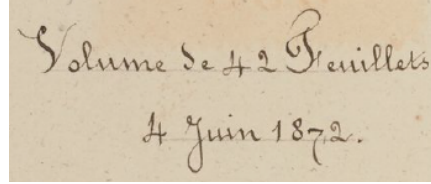 Volume de 42 Feuillets
4 Juin 1872.